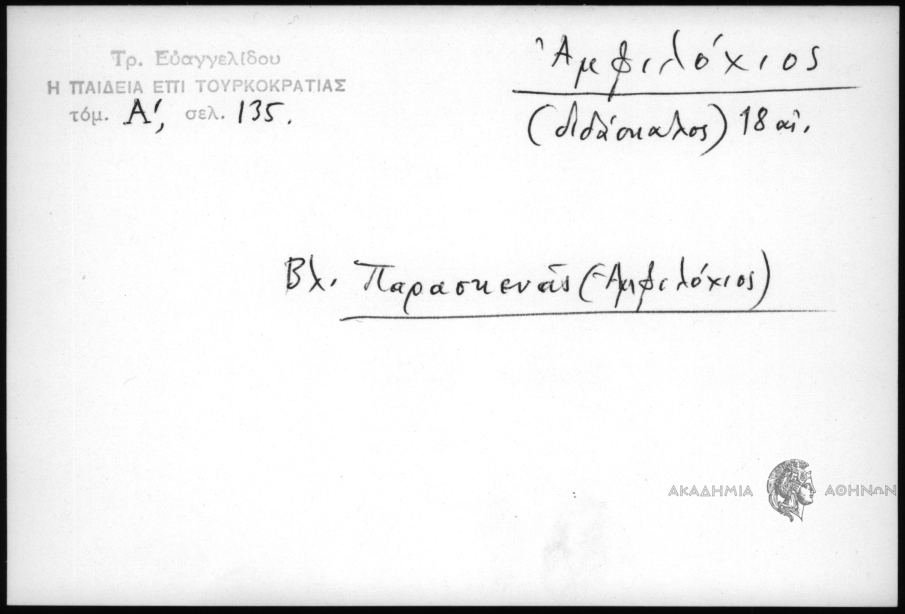 Τρ. Εὐαγγελίδου
Η ΠΑΙΔΕΙΑ ΕΠΙ ΤΟΥΡΚΟΚΡΑΤΙΑΣ
τόμ. Α', σελ. 135.
Ἀμφιλόχιος
(διδάσκαλος) 18 αἰ.
Βλ. Παρασκευᾶς (Ἀμφιλόχιος)
ΑΚΑΔΗΜΙΑ ΑΘΗΝΩΝ